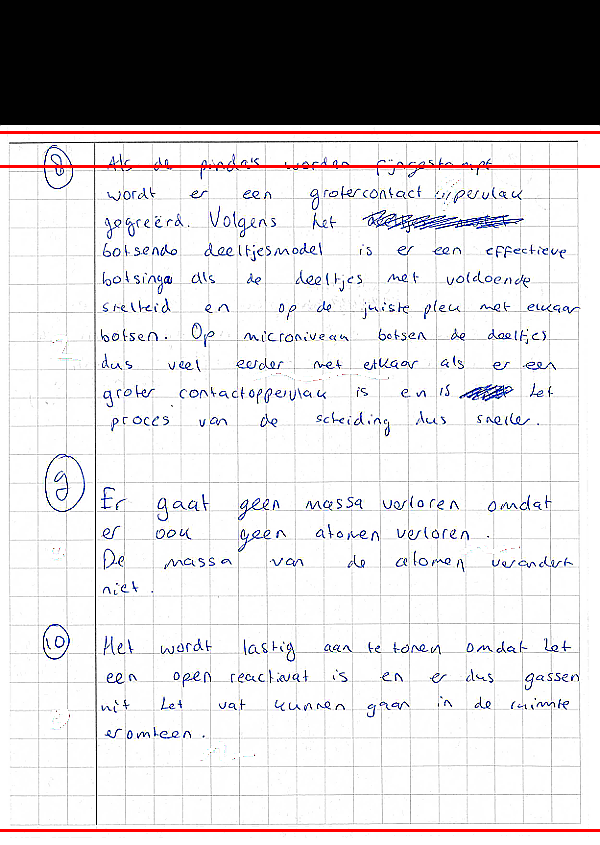 8 Als de pinda's worden fijngestampt
wordt er een groter contact oppervlak
gegreërd. Volgens het
botsende deeltjesmodel is er een effectieve
botsinga als de deeltjes met voldoende
snelheid en op de juiste plek met elkaar
botsen. Op microniveau botsen de deeltjes
dus veel eerder met elkaar als er een
groter contactoppervlak is en is het
proces van de scheiding dus sneller.
9 Er gaat geen massa verloren omdat
er ook geen atomen verloren.
De massa van de atomen verandert
niet.
10 Het wordt lastig aan te tonen omdat het
een open reactievat is en er dus gassen
uit het vat kunnen gaan in de ruimte
eromheen.